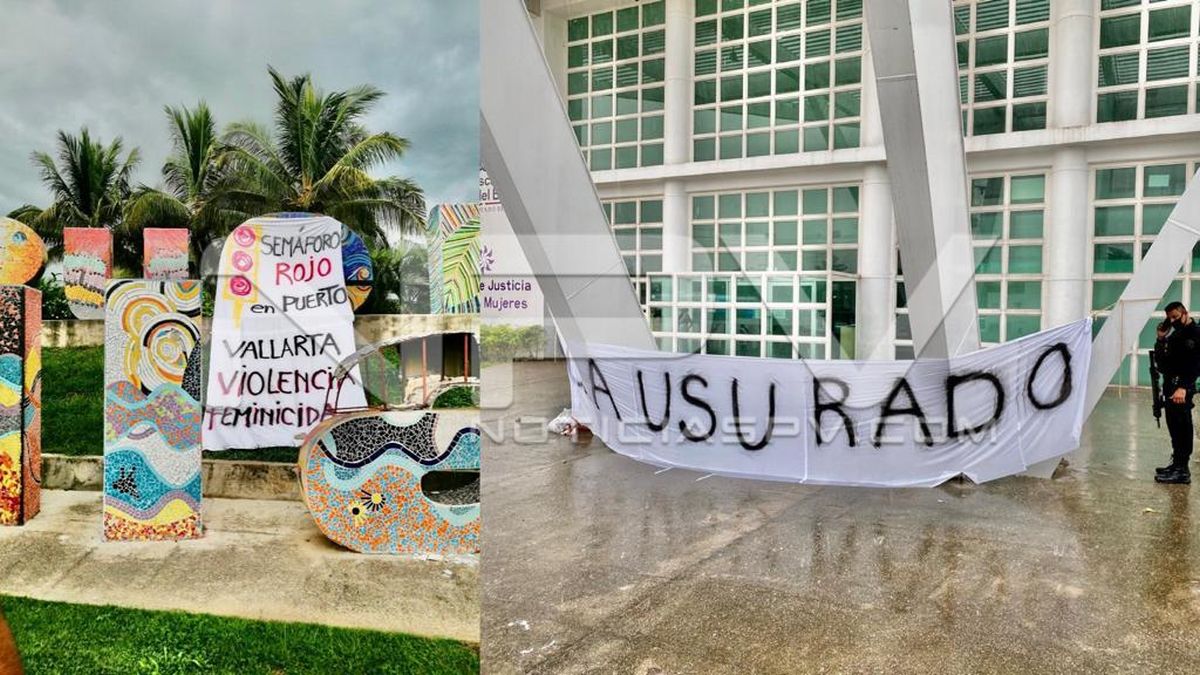 SEMÁFORO
ROJO
en PUERTO
VALLARTA
VIOLENCIA
FEMINICIDA
de Justicia
Mujeres
AUSURADO
NOTICIASPV.COM